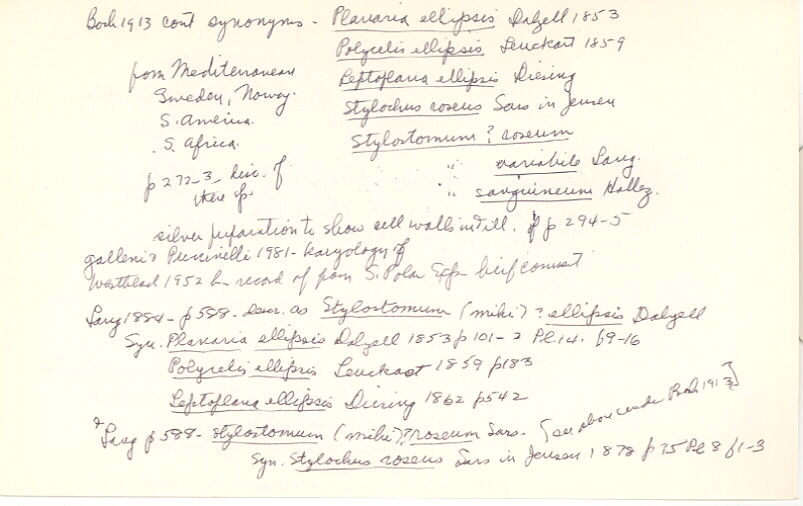 Bock 1913 cont synonyms - Planaria ellipsis Dalyell 1853
Polycelis ellipsis Leuckart 1859
from Mediterranean
Leptoplana ellipsis Diesing
Sweden, Norway.
Stylochus roseus Sars in Jensen
S. America.
S. Africa.
Stylostomum ? roseum
p 272-3 disc. of these sp.
" variabile Lang.
" sanguineum Hallez.
silver preparation to show cell walls in Ill. p 294-5
Galleni & Puccinelli 1981 - karyology of
Westblad 1952 record of from S. Polar Exp. brief comment
Lang 1884 - p 588 - descr. as Stylostomum (mihi) ? ellipsis Dalyell
Syn. Planaria ellipsis Dalyell 1853 p 101-2 Pl 14. f 9-16
Polycelis ellipsis Leuckart 1859 p 183
Leptoplana ellipsis Diesing 1862 p 542
Lang p 588 - Stylostomum (mihi) ? roseum Sars. [see above under Bock 1913]
Syn. Stylochus roseus Sars in Jensen 1878 p 75 Pl 8 f 1-3